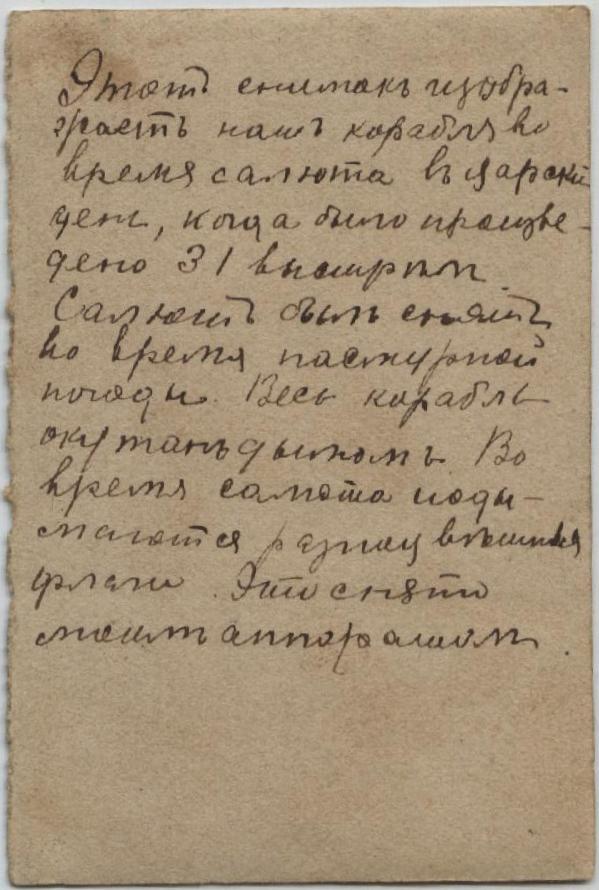 Этотъ снимокъ изобра-
жаетъ нашъ корабль во
время салюта въ царскій
день, когда было произве-
дено 31 выстрѣл.
Салютъ былъ снятъ
во время пасмурной
погоды. Весь корабль
окутанъ дымомъ. Во
время салюта поды-
маются разноцвѣтныя
флаги. Это снято
моимъ аппаратомъ.